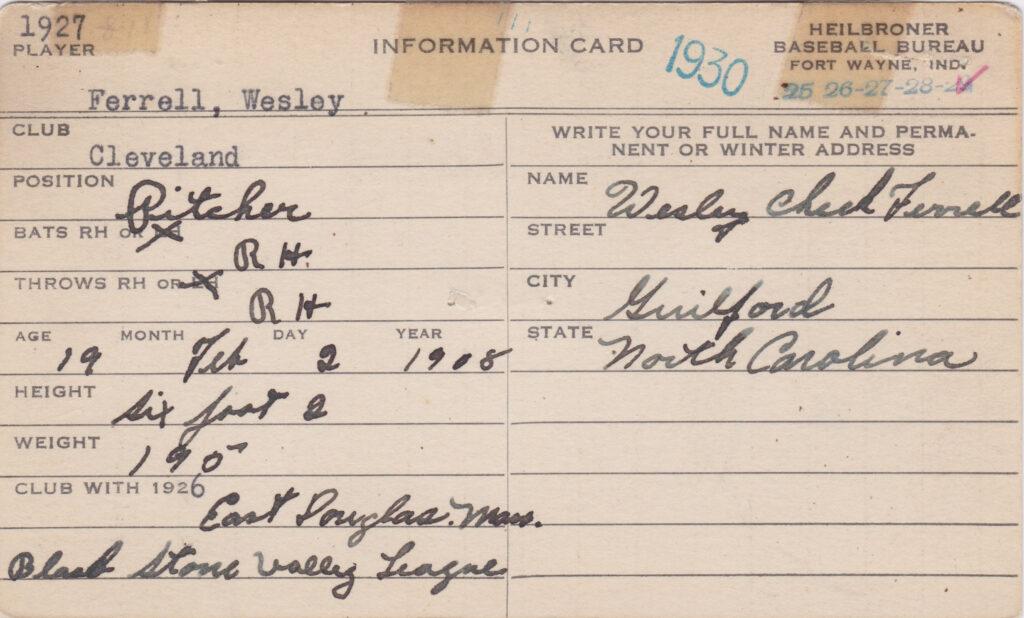 1927
PLAYER
INFORMATION CARD
1930
HEILBRONER
BASEBALL BUREAU
FORT WAYNE, IND.
25 26-27-28-29
Ferrell, Wesley
CLUB
Cleveland
POSITION Pitcher
BATS RH OR LH
R H.
THROWS RH OR LH
R H
AGE MONTH DAY YEAR
19 Feb 2 1908
HEIGHT
six foot 2
WEIGHT
195
CLUB WITH 1926
East Douglas. Mass.
Black Stone Valley League
WRITE YOUR FULL NAME AND PERMA-
NENT OR WINTER ADDRESS
NAME Wesley Cheek Ferrell
STREET
CITY Guilford
STATE North Carolina